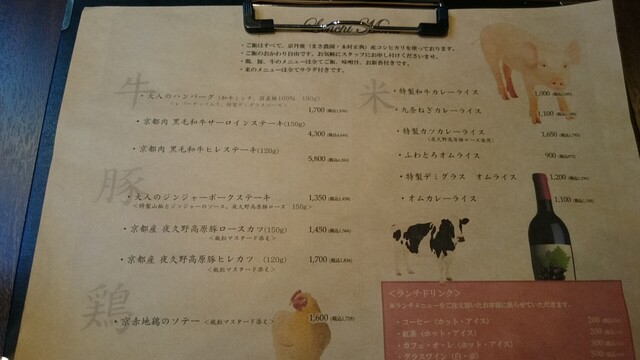 Lunch Menu
・ご飯はすべて、京丹後(まさ農園・木村正典)産コシヒカリを使っております。
・ご飯のおかわり自由です。お気軽にスタッフにお申し付けくださいませ。
・鶏、豚、牛のメニューは全てご飯、味噌汁、お新香付きです。
・米のメニューは全てサラダ付きです。
牛
・大人のハンバーグ
1,700
・京都肉 黒毛和牛サーロインステーキ(150g)
4,300
・京都肉 黒毛和牛ヒレステーキ(120g)
5,800
豚
・大人のジンジャーポークステーキ 1,350
150g>
・京都産 夜久野高原豚ロースカツ(150g) 1,450
<粒マスタード添え>
・京都産 夜久野高原豚ヒレカツ (120g) 1,700
<粒マスタード添え>
鶏
・京赤地鶏のソテー <粒マスタード添え> 1,600
米
・特製和牛カレーライス 1,000
・九条ねぎカレーライス 1,100
・特製カツカレーライス 1,650
・ふわとろオムライス 900
・特製デミグラス オムライス 1,200
・オムカレーライス 1,100
<ランチドリンク>
※ランチメニューをご注文頂いたお客様に限らせていただきます。
・コーヒー(ホット・アイス) 200
・紅茶(ホット・アイス) 200
・カフェ・オ・レ(ホット・アイス) 300
・グラスワイン(白・赤)